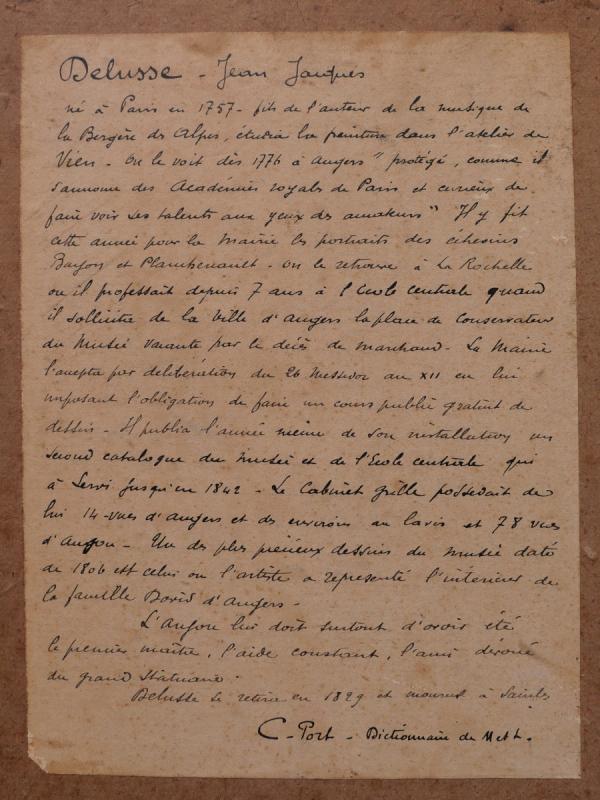 Delusse - Jean Jacques
né à Paris en 1757 - fils de l'auteur de la musique de
la Bergère des Alpes, étudia la peinture dans l'atelier de
Vien - on le voit dès 1776 à Angers "protégé, comme il
s'annonce des Académies royales de Paris et curieux de
faire voir ses talents aux yeux des amateurs" Il y fit
cette année pour la Mairie les portraits des échevins
et - on le retrouve à La Rochelle
ou il professait depuis 7 ans à l'école centrale quand
il sollicita de la ville d'Angers la place de conservateur
du Musée vacante par le décès de marchand - La Mairie
l'accepta par délibération du 26 Messidor an XII en lui
imposant l'obligation de faire un cours public gratuit de
dessin - Il publia l'année même de son installation un
second catalogue du musée et de l'Ecole centrale qui
à servi jusqu'en 1842 - Le Cabinet Grille possédait de
lui 14 vues d'Angers et des environs au lavis et 78 vues
d'Anjou - Un des plus précieux dessins du musée daté
de 1806 est celui ou l'artiste a représenté l'intérieur de
la famille David d'Angers -
L'Anjou lui doit surtout d'avoir été
le premier maître, l'aide constant, l'ami dévoué
du grand statuaire.
Delusse se retira en 1829 et mourut à Saintes
C - Port - Dictionnaire de